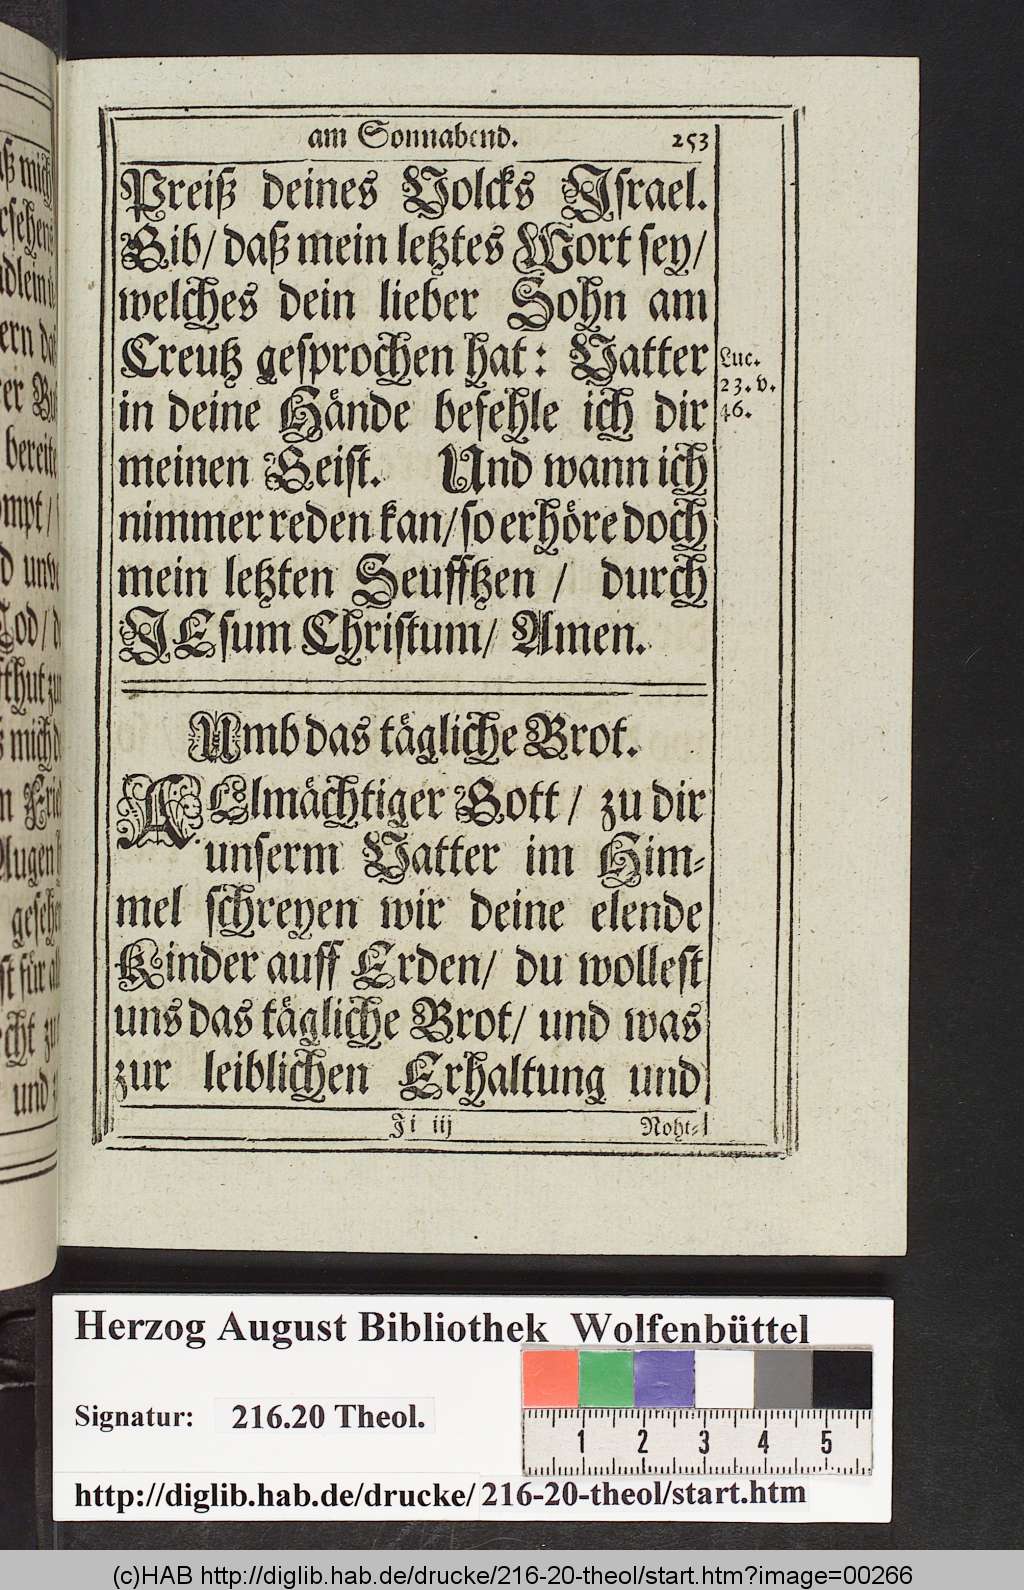 am Sonnabend. 253
Preiß deines Volcks Israel.
Gib/ daß mein letztes Wort sey/
welches dein lieber Sohn am
Creutz gesprochen hat: Vatter
in deine Hände befehle ich dir
meinen Geist. Und wann ich
nimmer reden kan/ so erhöre doch
mein letzten Seufftzen / durch
JEsum Christum/ Amen.
Luc.
23. v.
46.
Umb das tägliche Brot.
ALlmächtiger Gott / zu dir
unserm Vatter im Him-
mel schreyen wir deine elende
Kinder auff Erden/ du wollest
uns das tägliche Brot/ und was
zur leiblichen Erhaltung und
Ji iij Noht-
aß mich
bereite
ompt/
gesehe
und
Herzog August Bibliothek Wolfenbüttel
Signatur: 216.20 Theol.
1 2 3 4 5
http://diglib.hab.de/drucke/216-20-theol/start.htm
(c)HAB http://diglib.hab.de/drucke/216-20-theol/start.htm?image=00266